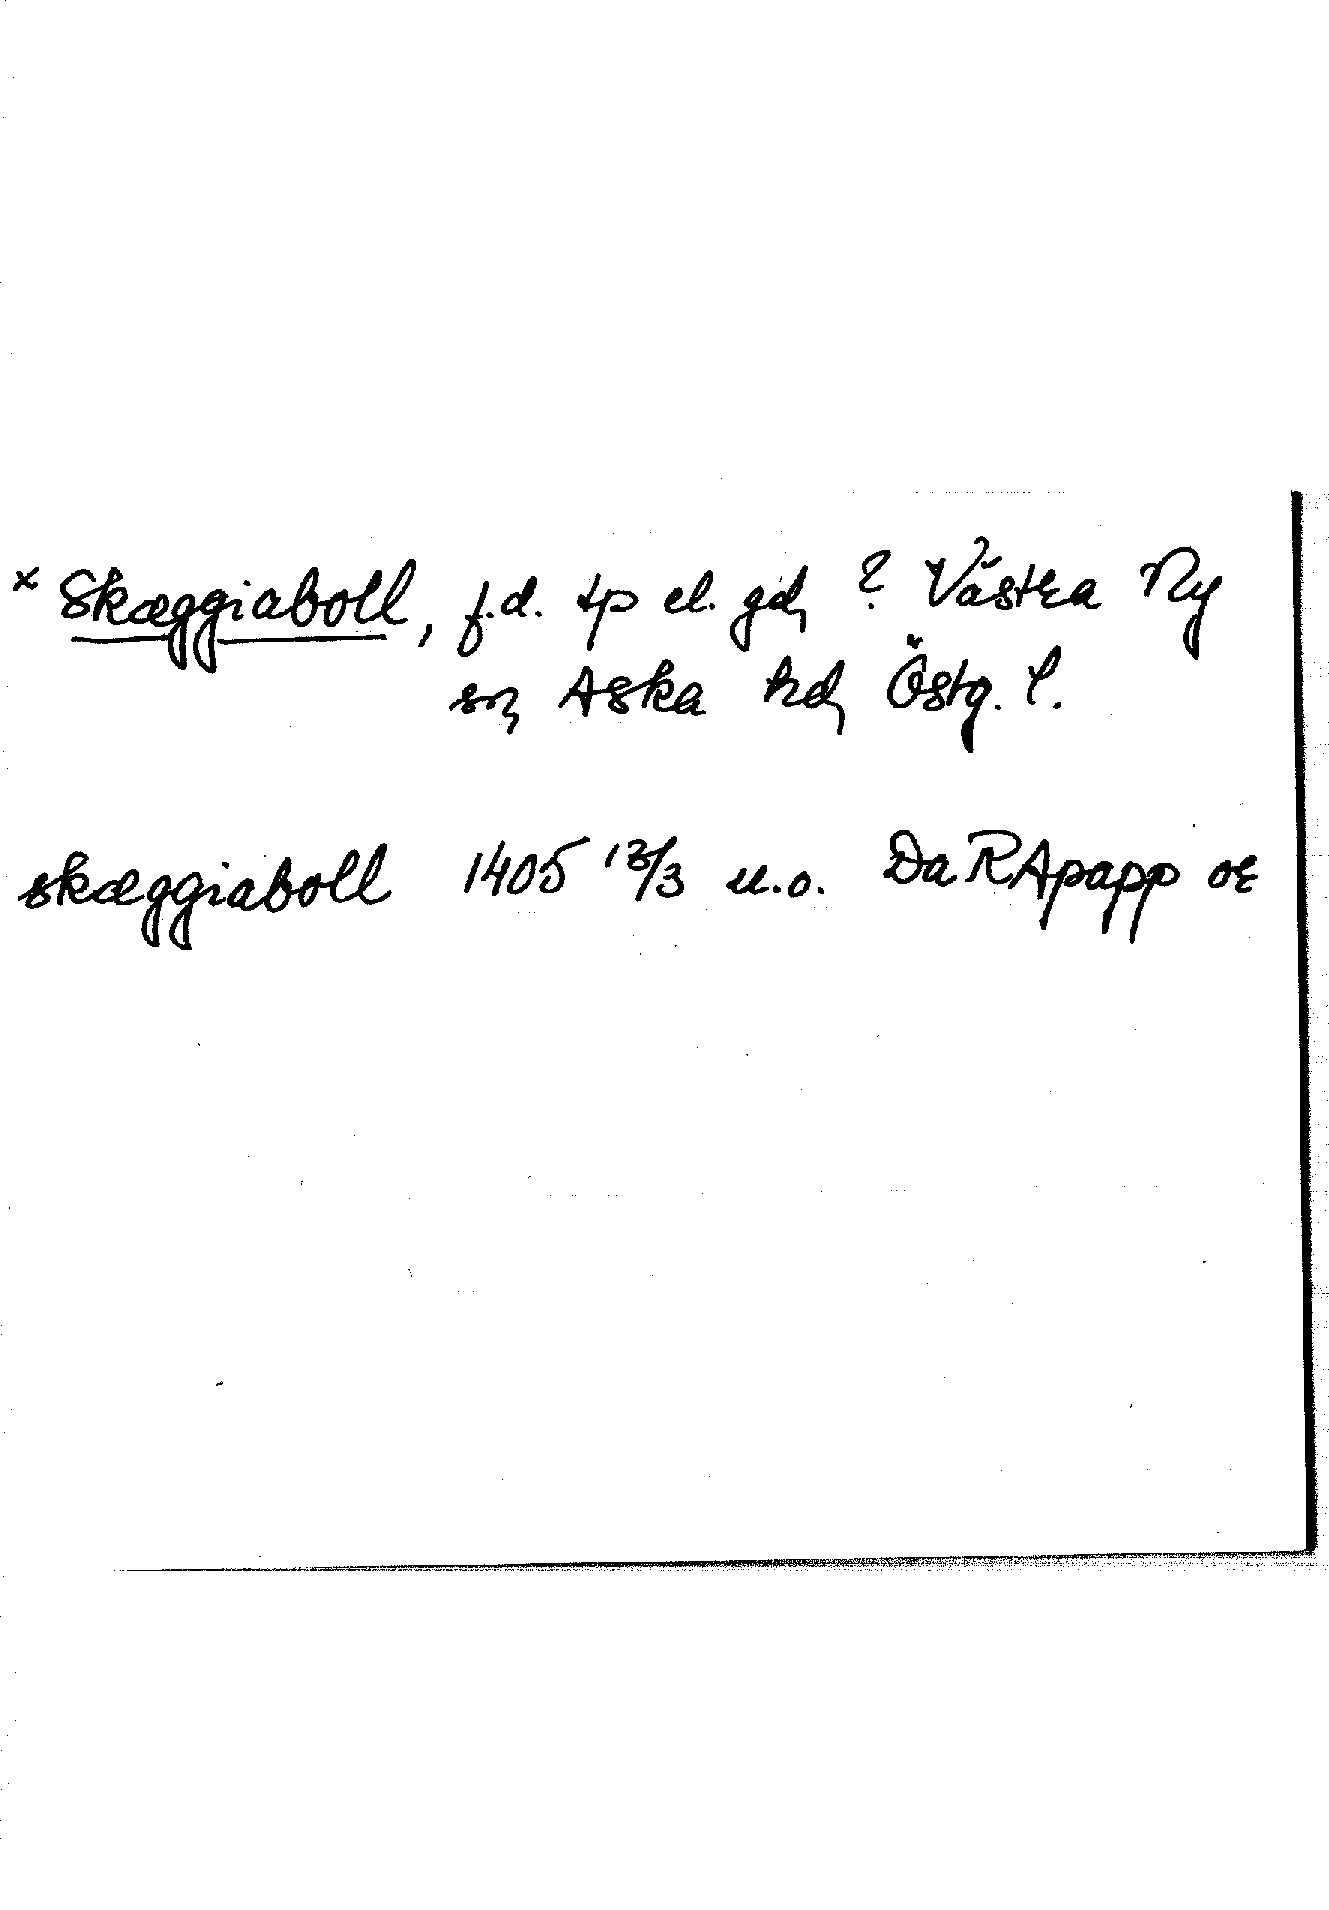 x Skæggiaboll, f.d. tp el. gd, ? Västra Ny
sn, Aska hd, Östg. l.
skæggiaboll 1405 13/3 u.o. Da RApapp or